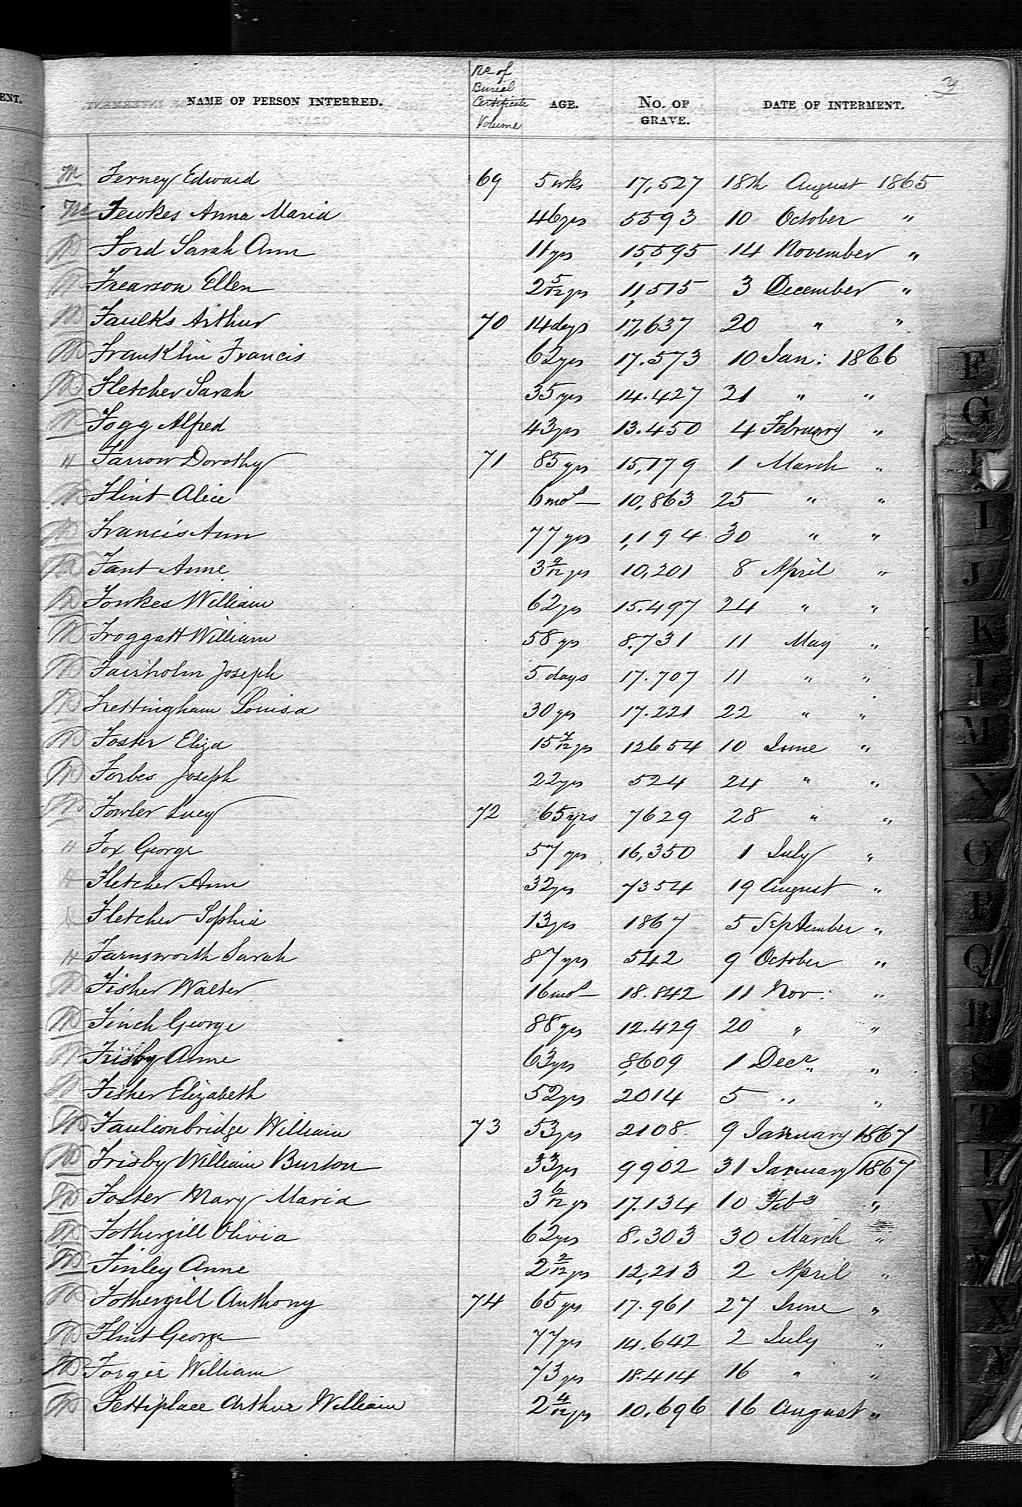 ENT.
NAME OF PERSON INTERRED. No of Burial Certificate Volume AGE. No. OF GRAVE. DATE OF INTERMENT.
Ferney Edward 69 5 wks 17,527 18th August 1865
Fewkes Anna Maria 46 yrs 5593 10 October "
Ford Sarah Ann 11 yrs 15,595 14 November "
Frearson Ellen 2 5/12 yrs 11,515 3 December "
Faulks Arthur 70 14 days 17,637 20 " "
Franklin Francis 62 yrs 17.573 10 Jan: 1866
Fletcher Sarah 35 yrs 14.427 21 " "
Fogg Alfred 43 yrs 13.450 4 February "
Farrow Dorothy 71 85 yrs 15,179 1 March "
Flint Alice 6 mos 10,863 25 " "
Francis Ann 77 yrs 1,194 30 " "
Fant Anne 3 9/12 yrs 10,201 8 April "
Fowkes William 62 yrs 15.497 24 " "
Froggatt William 58 yrs 8.731 11 May "
Fairholm Joseph 5 days 17.707 11 " "
Frettingham Louisa 30 yrs 17.221 22 " "
Foster Eliza 15 7/12 yrs 12654 10 June "
Forbes Joseph 22 yrs 524 24 " "
Fowler Lucy 72 65 yrs 7629 28 " "
Fox George 57 yrs 16,350 1 July "
Fletcher Ann 32 yrs 7354 19 August "
Fletcher Sophia 13 yrs 1867 5 September "
Farnsworth Sarah 87 yrs 542 9 October "
Fisher Walter 16 mos 18.842 11 Nov: "
Finch George 88 yrs 12.429 20 " "
Frisby Anne 63 yrs 8,609 1 Decr "
Fisher Elizabeth 52 yrs 2014 5 " "
Faulionbridge William 73 53 yrs 2108 9 January 1867
Frisby William Burton 33 yrs 9902 31 January 1867
Foster Mary Maria 3 6/12 yrs 17.134 10 Feb "
Fothergill Olivia 62 yrs 8.303 30 March "
Finley Anne 2 2/12 yrs 12,213 2 April "
Fothergill Anthony 74 65 yrs 17.961 27 June "
Flint George 77 yrs 14.642 2 July "
Forgie William 73 yrs 18.414 16 " "
Fettiplace Arthur William 2 4/12 yrs 10.696 16 August "
F
G
I
J
K
M
O
P
Q
R
S
T
V
X
Y